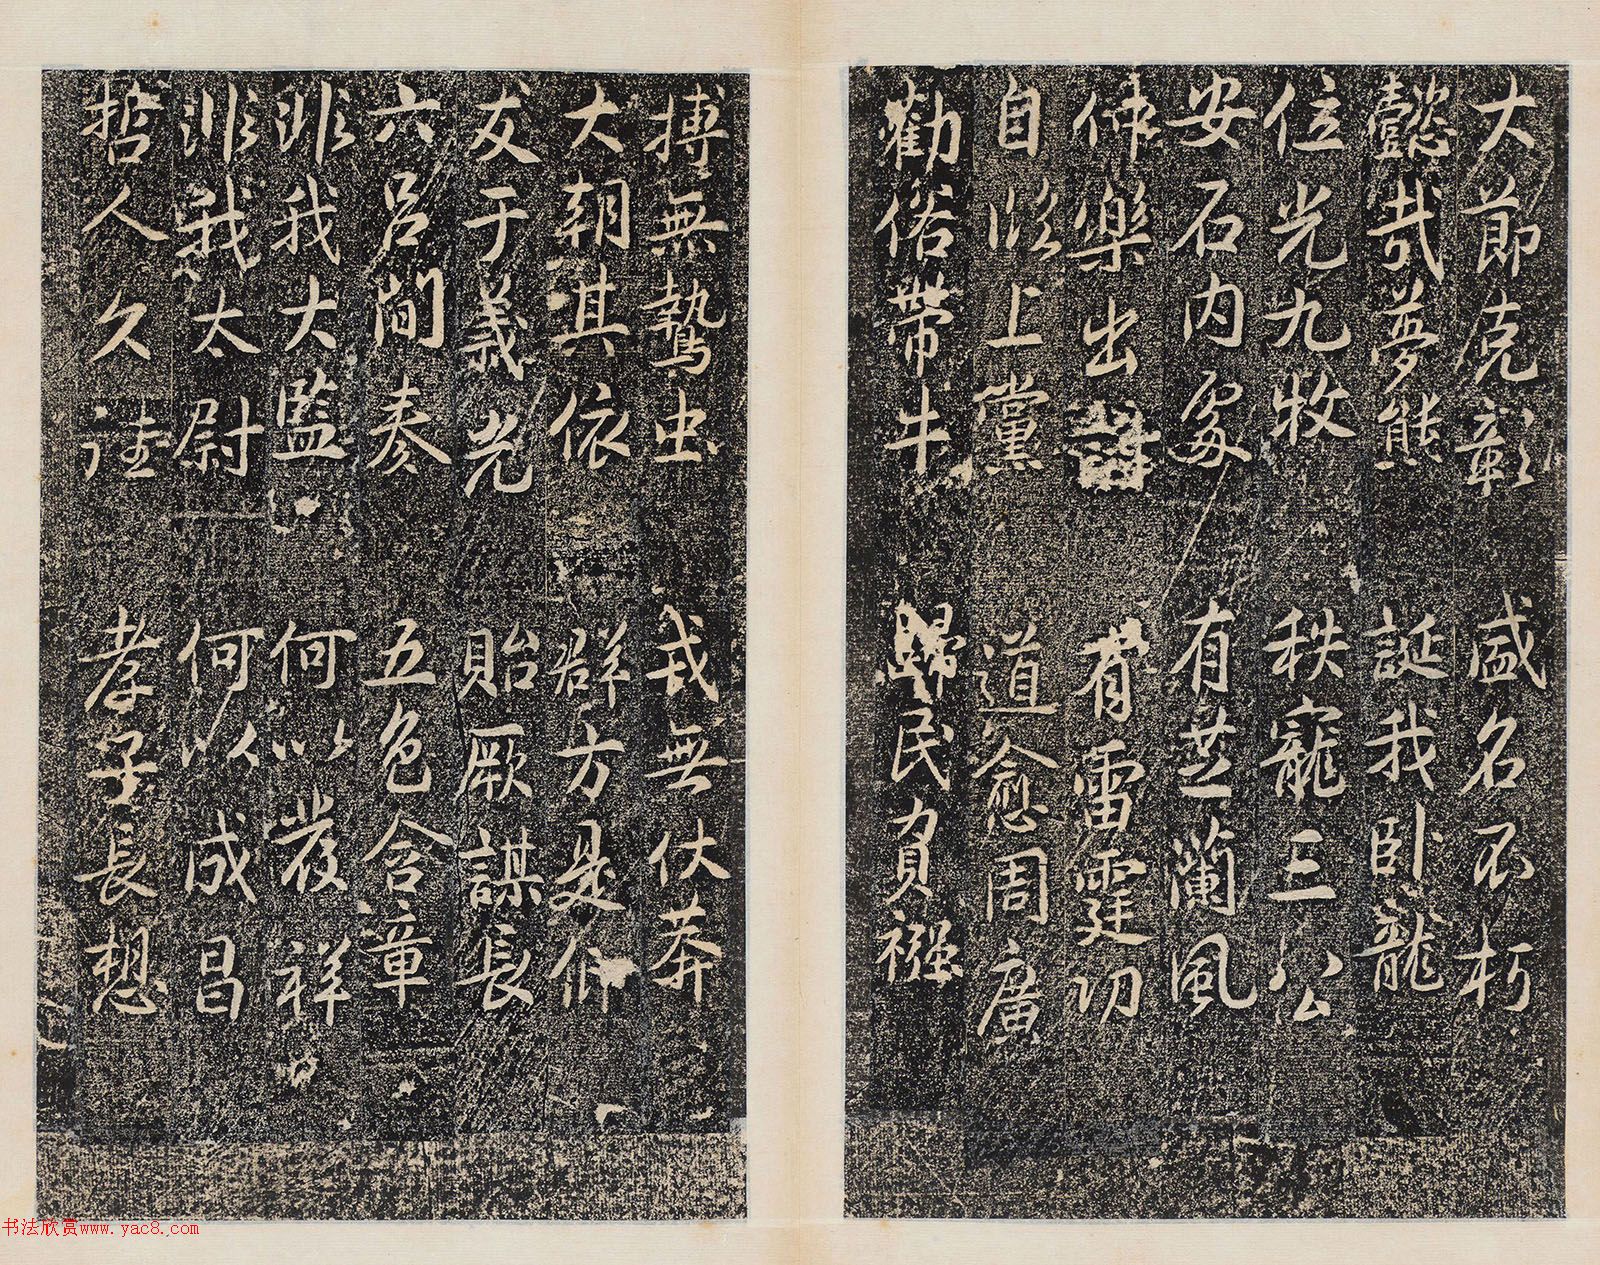 大節克彰 盛名不朽
懿哉夢熊 誕我卧龍
位光九牧 秩寵三公
安石内處 有芝蘭風
仲樂出 有雷霆功
自臨上黨 道愈周廣
勸俗帶牛 歸民負襁
搏無鷙虫 戎無伏莽
大朝其依 群方是仰
友于義光 貽厥謀長
六呂間奏 五色含章
非我大監 何以發祥
非我太尉 何以成昌
哲人久 孝子長想
书法欣赏www.yac8.com